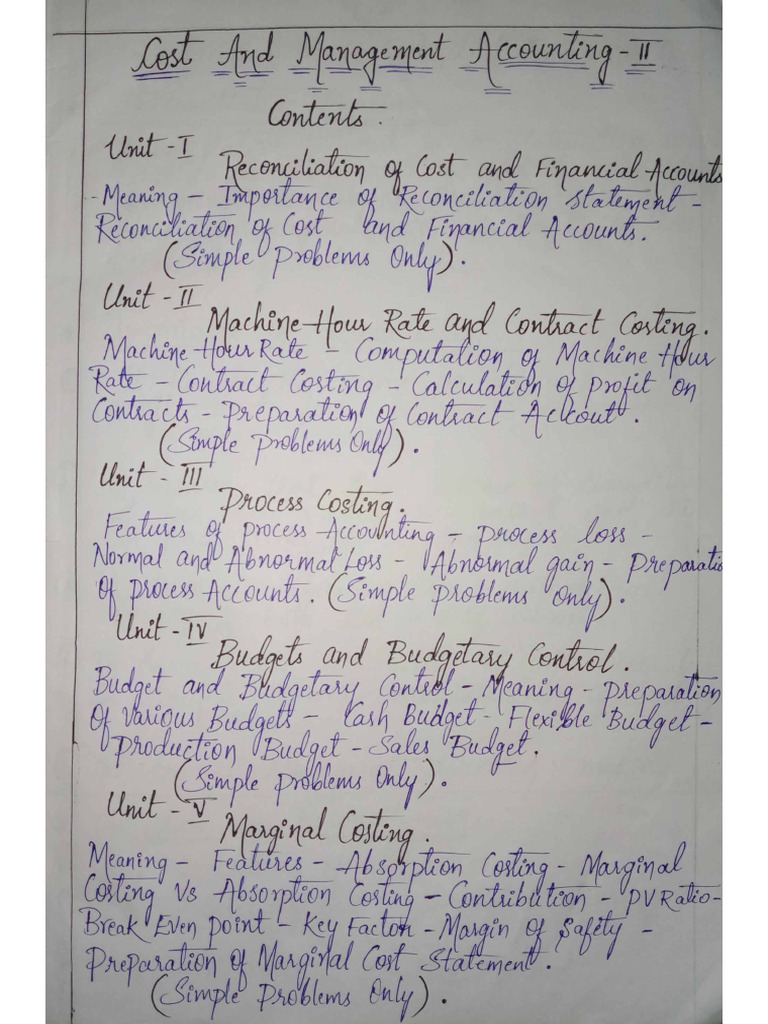 Cost And Management Accounting - II
Contents.
Unit - I
Reconciliation of Cost and Financial Accounts
- Meaning - Importance of Reconciliation Statement -
Reconciliation of Cost and Financial Accounts.
(Simple Problems Only).
Unit - II
Machine-Hour Rate and Contract Costing.
Machine-Hour Rate - Computation of Machine Hour
Rate - Contract Costing - Calculation of Profit on
Contracts - Preparation of Contract Accout.
(Simple Problems Only).
Unit - III
Process Costing.
Features of process Accounting - Process loss -
Normal and Abnormal Loss - Abnormal gain - Preparatio
Of Process Accounts. (Simple Problems Only).
Unit - IV
Budgets and Budgetary Control.
Budget and Budgetary Control - Meaning - Preparation
Of Various Budgets - Cash Budget - Flexible Budget -
Production Budget - Sales Budget.
(Simple Problems Only).
Unit - V
Marginal Costing.
Meaning - Features - Absorption Costing - Marginal
Costing Vs Absorption Costing - Contribution - PV Ratio -
Break Even Point - Key Factor - Margin Of Safety -
Preparation Of Marginal Cost Statement.
(Simple Problems Only).